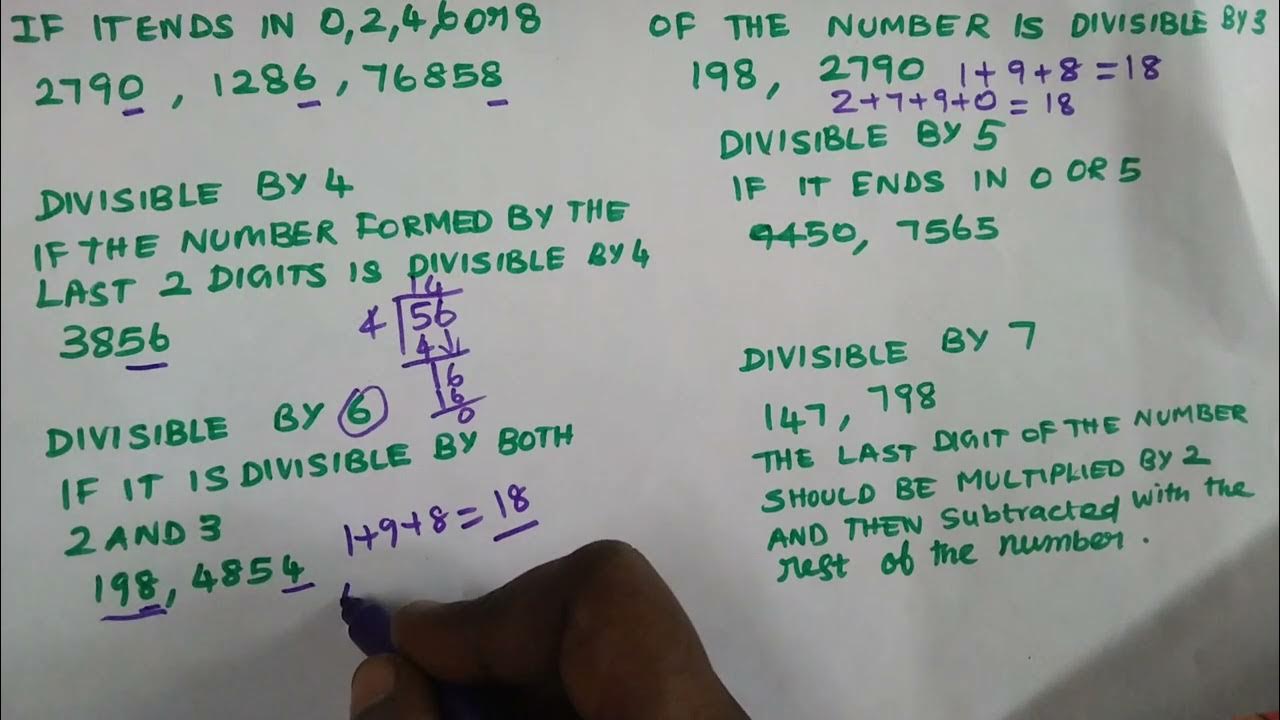 IF IT ENDS IN 0,2,4,6 or 8
2790, 1286, 76858
DIVISIBLE BY 4
IF THE NUMBER FORMED BY THE
LAST 2 DIGITS IS DIVISIBLE BY 4
3856
14
4 56
4
16
16
0
DIVISIBLE BY 6
IF IT IS DIVISIBLE BY BOTH
2 AND 3
1+9+8=18
198, 4854
OF THE NUMBER IS DIVISIBLE BY 3
198, 2790 1+9+8=18
2+7+9+0=18
DIVISIBLE BY 5
IF IT ENDS IN 0 OR 5
9450, 7565
DIVISIBLE BY 7
147, 798
THE LAST DIGIT OF THE NUMBER
SHOULD BE MULTIPLIED BY 2
AND THEN subtracted with the
rest of the number.